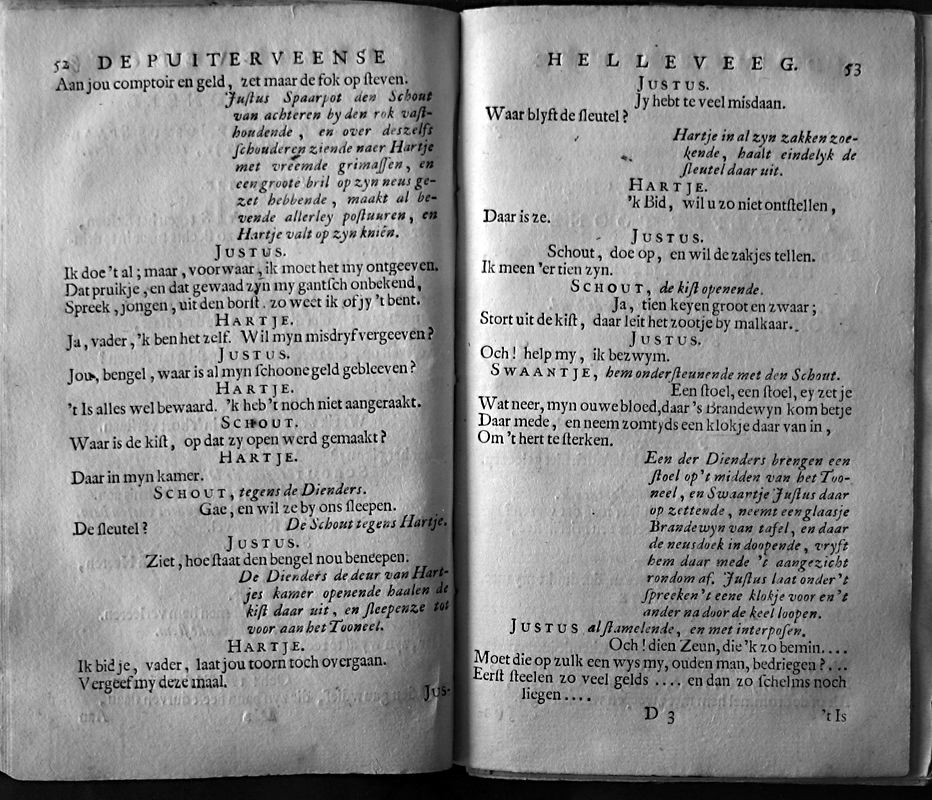 52 DE PUITERVEENSE
Aan jou comptoir en geld, zet maar de fok op steven.
Justus Spaarpot den Schout
van achteren by den rok vast-
houdende, en over deszelfs
schouderen ziende naer Hartje
met vreemde grimassen, en
een groote bril op zyn neus ge-
zet hebbende, maakt al be-
vende allerley postuuren, en
Hartje valt op zyn kniën.
JUSTUS.
Ik doe 't al; maar, voorwaar, ik moet het my ontgeeven.
Dat pruikje, en dat gewaad zyn my gantsch onbekend,
Spreek, jongen, uit den borst. zo weet ik of jy 't bent.
HARTJE.
Ja, vader, 'k ben het zelf. Wil myn misdryf vergeeven?
JUSTUS.
Jou, bengel, waar is al myn schoone geld gebleeven?
HARTJE.
't Is alles wel bewaard. 'k heb 't noch niet aangeraakt.
SCHOUT.
Waar is de kist, op dat zy open werd gemaakt?
HARTJE.
Daar in myn kamer.
SCHOUT, tegens de Dienders.
Gae, en wil ze by ons sleepen.
De sleutel? De Schout tegens Hartje.
JUSTUS.
Ziet, hoe staat den bengel nou beneepen.
De Dienders de deur van Hart-
jes kamer openende haalen de
kist daar uit, en sleepenze tot
voor aan het Tooneel.
HARTJE.
Ik bid je, vader, laat jou toorn toch overgaan.
Vergeef my deze maal.
JUS-
HELLEVEEG. 53
JUSTUS.
Jy hebt te veel misdaan.
Waar blyft de sleutel?
Hartje in al zyn zakken zoe-
kende, haalt eindelyk de
sleutel daar uit.
HARTJE.
'k Bid, wil u zo niet ontstellen,
Daar is ze.
JUSTUS.
Schout, doe op, en wil de zakjes tellen.
Ik meen 'er tien zyn.
SCHOUT, de kist openende.
Ja, tien keyen groot en zwaar;
Stort uit de kist, daar leit het zootje by malkaar.
JUSTUS.
Och! help my, ik bezwym.
SWAANTJE, hem ondersteunende met den Schout.
Een stoel, een stoel, ey zet je
Wat neer, myn ouwe bloed, daar 's Brandewyn kom betje
Daar mede, en neem zomtyds een klokje daar van in,
Om 't hert te sterken.
Een der Dienders brengen een
stoel op 't midden van het Too-
neel, en Swaantje Justus daar
op zettende, neemt een glaasje
Brandewyn van tafel, en daar
de neusdoek in doopende, vryft
hem daar mede 't aangezicht
rondom af. Justus laat onder 't
spreeken 't eene klokje voor en 't
ander na door de keel loopen.
JUSTUS al stamelende, en met interposen.
Och! dien Zeun, die 'k zo bemin....
Moet die op zulk een wys my, ouden man, bedriegen?...
Eerst steelen zo veel gelds .... en dan zo schelms noch
liegen....
D 3 't Is